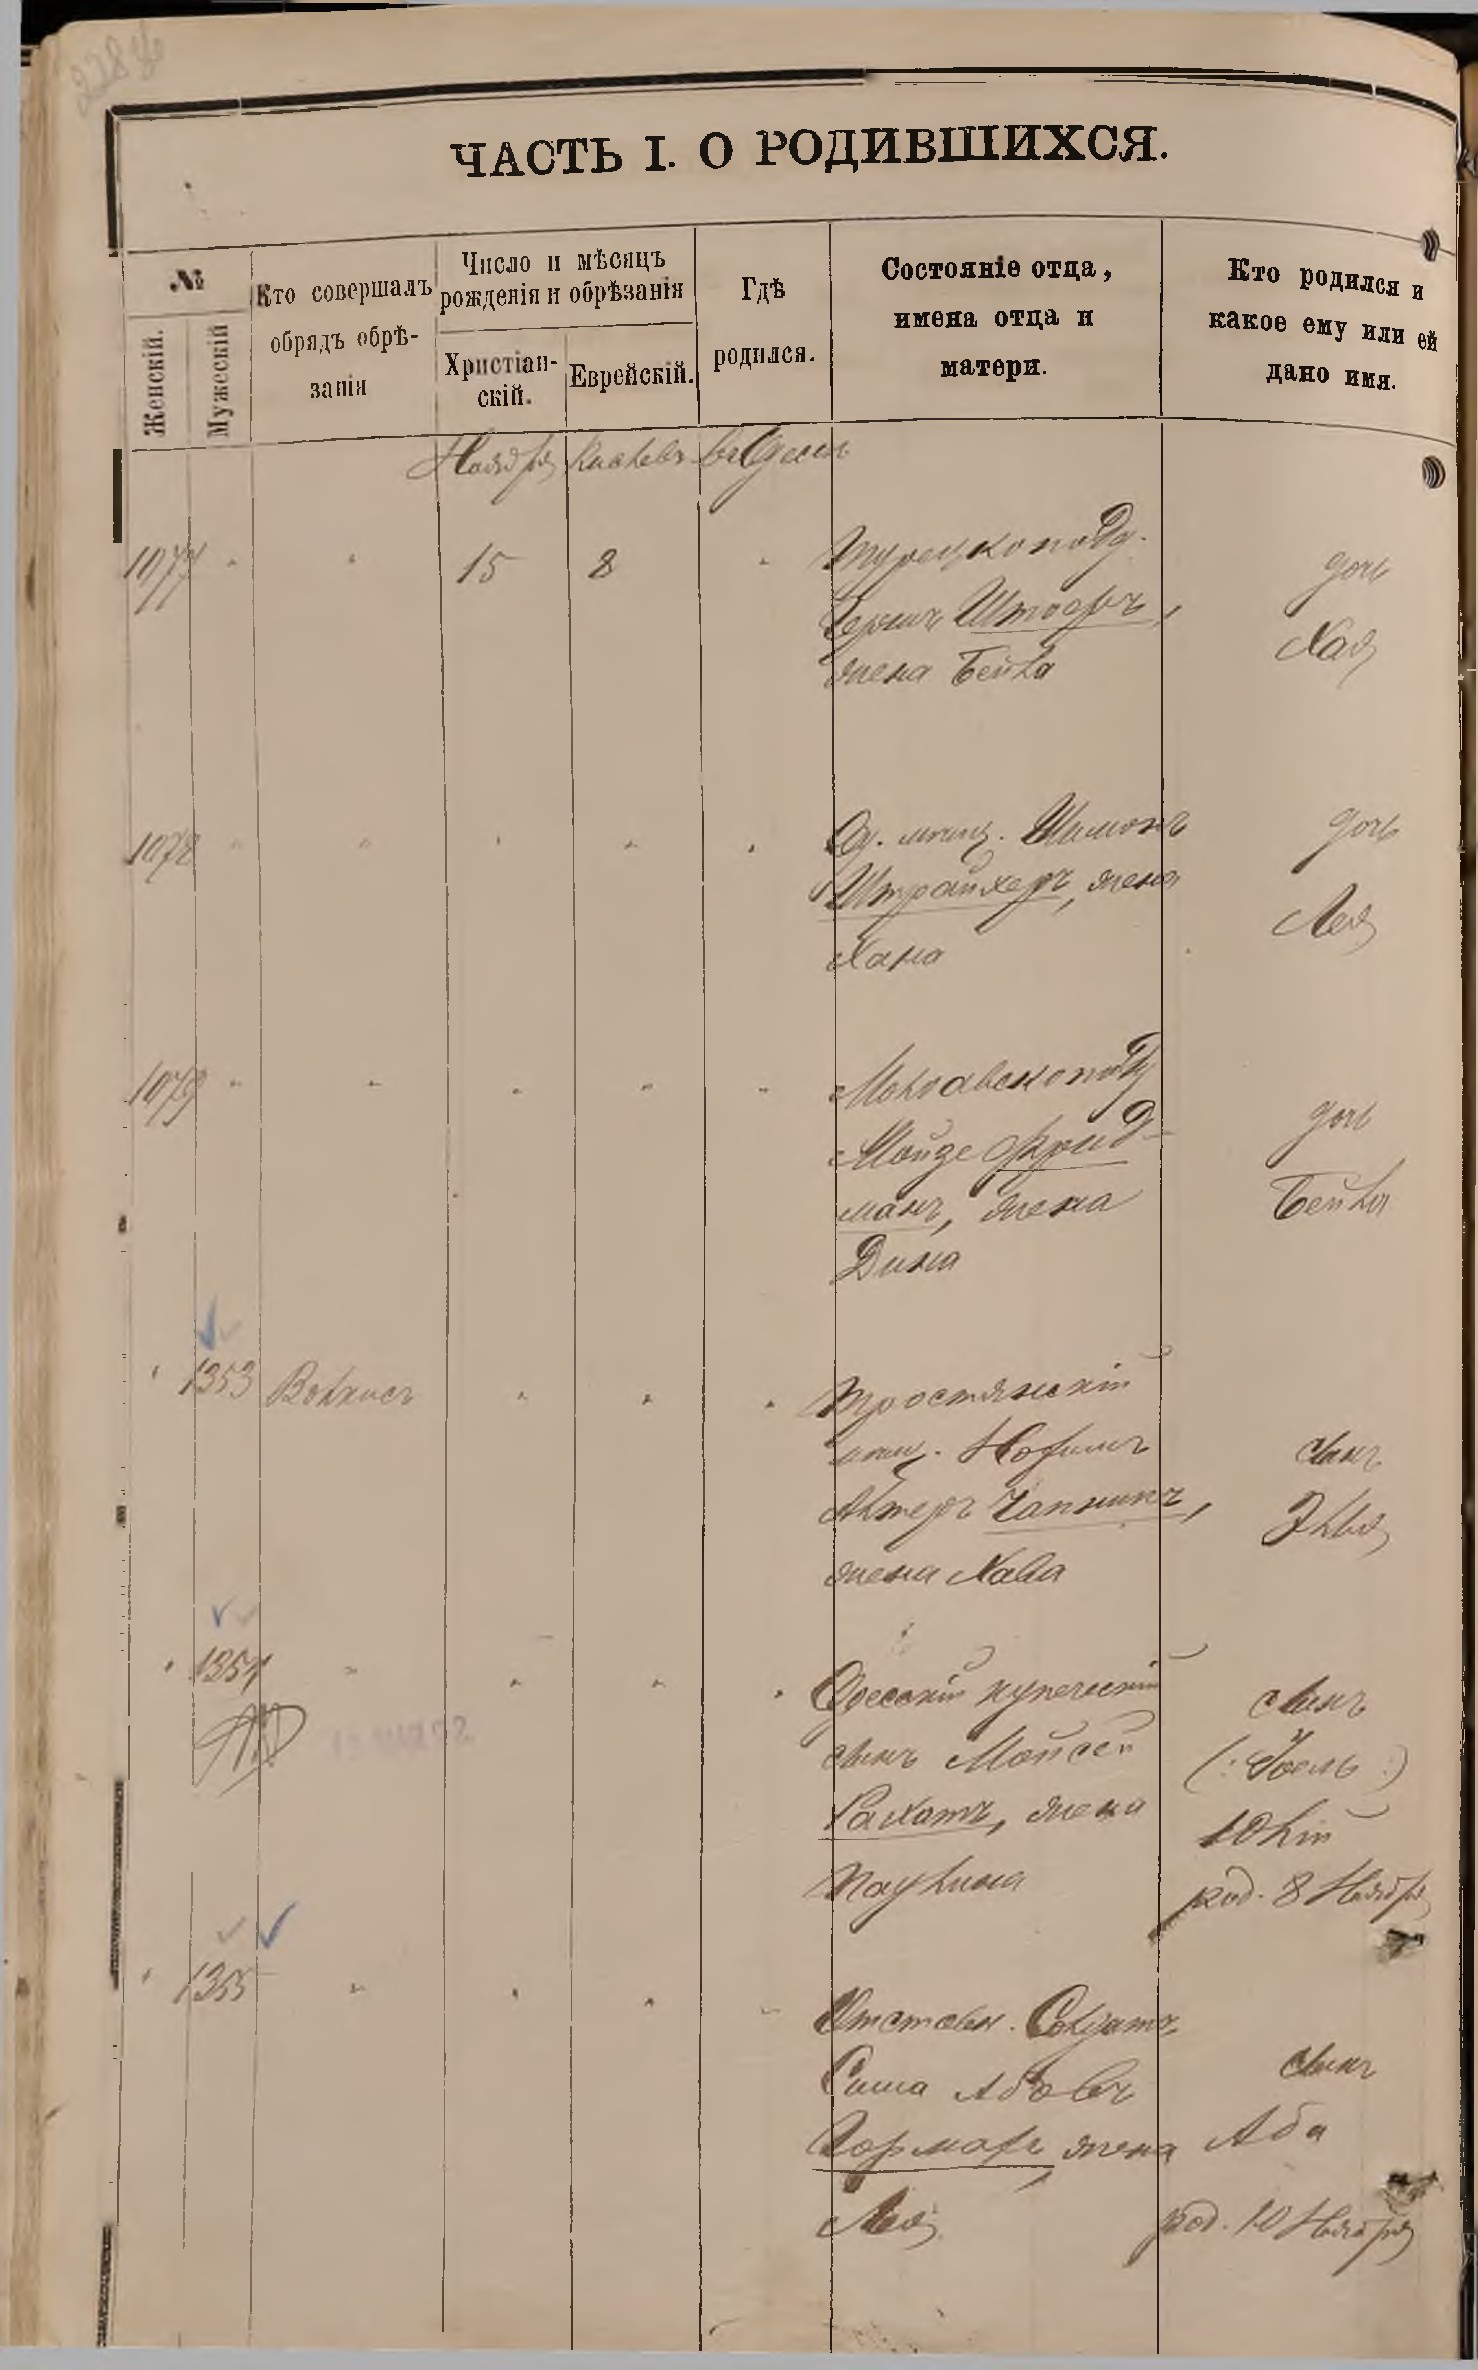 ЧАСТЬ I. О РОДИВШИХСЯ.
№
Женскій.
Мужескій
Кто совершалъ
обрядъ обрѣ-
занія
Число и мѣсяцъ
рожденія и обрѣзанія
Христіан-
скій.
Еврейскій.
Гдѣ
родился.
Состояніе отца,
имена отца и
матери.
Кто родился и
какое ему или ей
дано имя.
Ноября Кислевъ въ Одессѣ
1077 " " 15 8 " Турецкоподд.
Герш Штоеръ,
жена Бейла
дочь
Хая
1078 " " " " " Од. мѣщ. Шимонъ
Штрайхеръ, жена
Хана
дочь
Лея
1079 " " " " " Молдавскопод.
Мойзе Фрид-
манъ, жена
Дина
дочь
Бейла
" 1353 Волхисъ " " " Тростянскій
мѣщ.
Алтеръ Чапникъ,
жена Хава
сынъ
Элья
" 1354 " " " " Одесскій купеческій
сынъ Мойсей
Рахатъ, жена
Паулина
сынъ
(: Іоель :)
Юлій
род. 8 Ноября
" 1355 " " " " Отставн. Солдатъ
Сима Абовъ
жена
Лея
сынъ
Аба
род. 10 Ноября